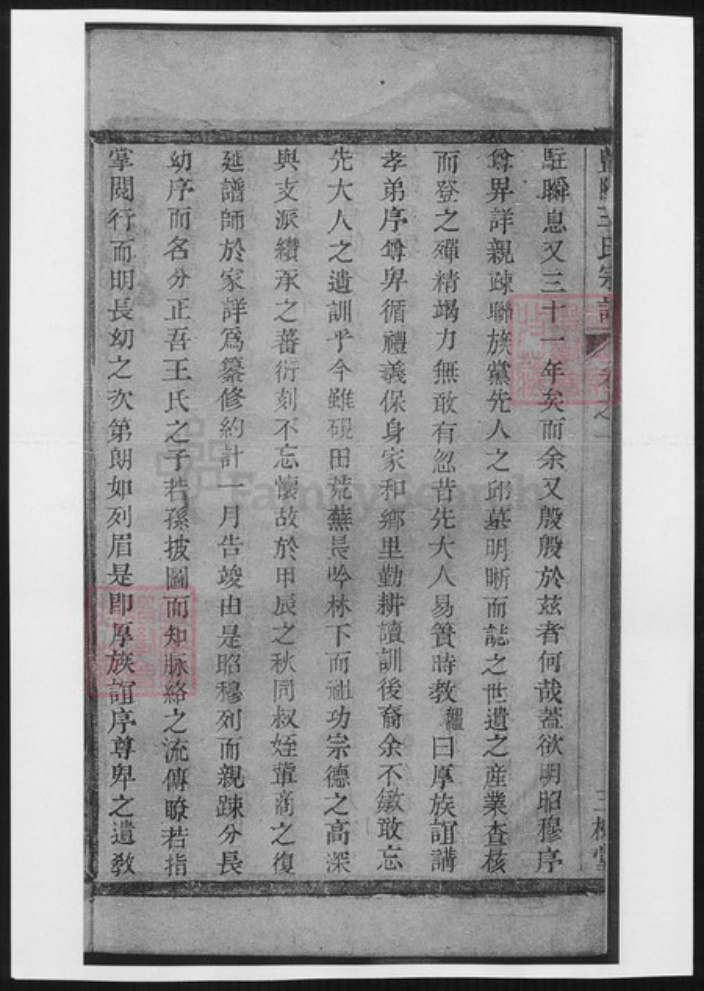 王氏宗譜
駐瞬息又三十一年矣而余又殷殷於茲者何哉蓋欲明昭穆序
尊卑詳親疎聯族黨先人之邱墓明晰而誌之世遺之産業查核
而登之殫精竭力無敢有忽昔先大人易簀時教 曰厚族誼講
孝弟序尊卑循禮義保身家和鄉里勤耕讀訓後裔余不敏敢忘
先大人之遺訓乎今雖硯田荒蕪長吟林下而祖功宗德之高深
與支派纘承之蕃衍刻不忘懷故於甲辰之秋同叔姪輩商之復
延譜師於家詳爲纂修約計一月告竣由是昭穆列而親踈分長
幼序而名分正吾王氏之子若孫披圖而知脉絡之流傳瞭若指
掌閱行而明長幼之次第朗如列眉是即厚族誼序尊卑之遺教
FamilySearch